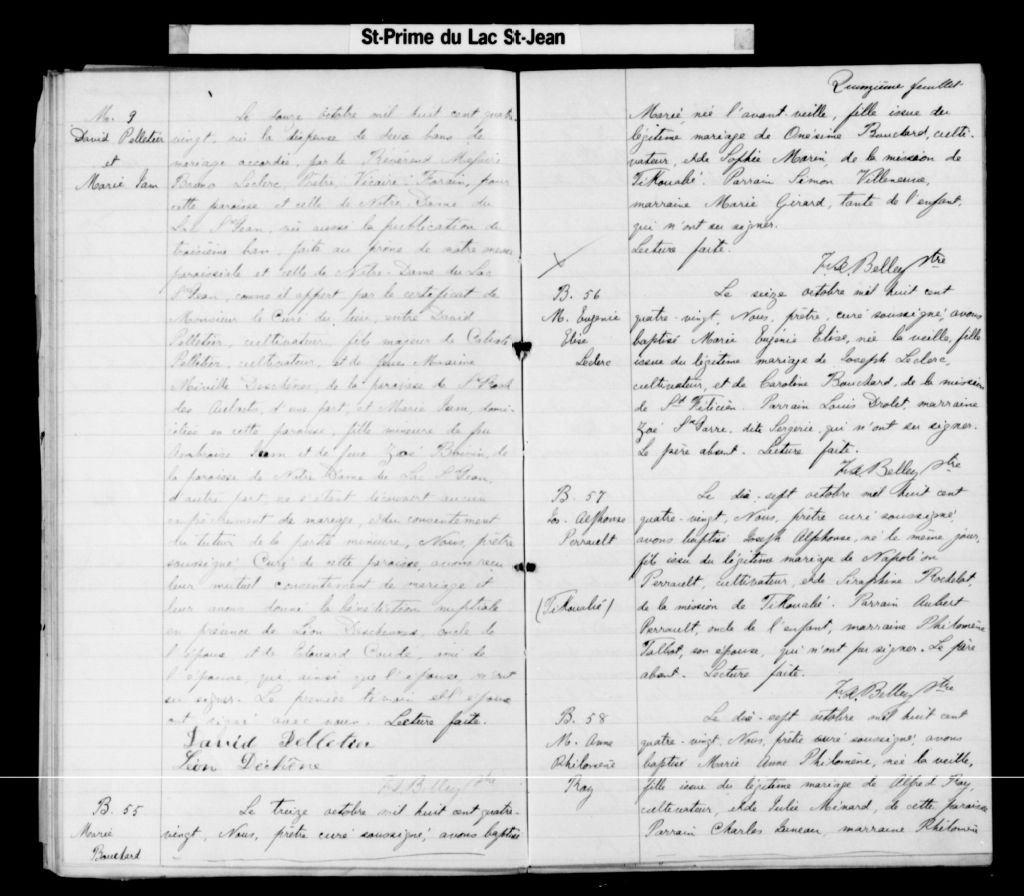 St-Prime du Lac St-Jean
M. 9
David Pelletier
et
Marie Jam
Le douze octobre mil huit cent quatre-
vingt, vu la dispense de deux bans de
mariage accordée, par le Révérend Messire
Bruno Leclerc, Prêtre Vicaire Forain, pour
cette paroisse et celle de Notre Dame du
Lac St Jean, vu aussi la publication du
troisième ban, faite au prône de notre messe
paroissiale et celle de Notre-Dame du Lac
St Jean, comme il appert par le certificat de
Monsieur le Curé du lieu, entre David
Pelletier, cultivateur, fils majeur de
Pelletier, cultivateur, et de feue
Miville Deschênes, de la paroisse de St Roch
des Aulnets, d'une part, et Marie Jam, domi-
ciliée en cette paroisse, fille mineure de feu
Ambroise Jam et de feue Zoé Boivin, de
la paroisse de Notre Dame du Lac St Jean,
d'autre part, ne s'étant découvert aucun
empêchement de mariage, et du consentement
du tuteur de la partie mineure, Nous, prêtre
soussigné Curé de cette paroisse, avons reçu
leur mutuel consentement de mariage et
leur avons donné la bénédiction nuptiale
en présence de Léon Deschesnes, oncle de
l'époux, et de Edouard ami de
l'épouse, qui, ainsi que l'épouse, n'ont
su signer. Le premier témoin et l'époux
ont signé avec nous. Lecture faite.
David Pelletier
Léon Dechêne
F. A. Belley Ptre
B. 55
Marie
Bouchard
Le treize octobre mil huit cent quatre-
vingt, Nous, prêtre curé soussigné, avons baptisé
Quinzième feuillet
Marie née l'avant-veille, fille issue du
légitime mariage de Onésime Bouchard, culti-
vateur, et de Sophie Marin, de la mission de
Tikoualié. Parrain Simon Villeneuve,
marraine Marie Girard, tante de l'enfant,
qui n'ont su signer.
Lecture faite.
F. A. Belley Ptre
B. 56
M. Eugénie
Elise
Leclerc
Le seize octobre mil huit cent
quatre-vingt, Nous, prêtre, curé soussigné, avons
baptisé Marie Eugénie Elise, née la veille, fille
issue du légitime mariage de Joseph Leclerc,
cultivateur, et de Caroline Bouchard, de la mission
de St Féticien. Parrain Louis Drolet, marraine
Zoé St Parre, dite Sergerie, qui n'ont su signer.
Le père absent. Lecture faite.
F. A. Belley Ptre
B. 57
Jos. Alphonse
Perrault
(Tikoualié)
Le dix-sept octobre mil huit cent
quatre-vingt, Nous, prêtre curé soussigné,
avons baptisé Joseph Alphonse, né le même jour,
fils issu du légitime mariage de Napoléon
Perrault, cultivateur, et de Séraphine
de la mission de Tikoualié. Parrain Aubert
Perrault, oncle de l'enfant, marraine Philomène
Talbot, son épouse, qui n'ont pu signer. Le père
absent. Lecture faite.
F. A. Belley Ptre
B. 58
M. Anne
Philomène
Ray
Le dix-sept octobre mil huit cent
quatre-vingt, Nous, prêtre curé soussigné, avons
baptisé Marie Anne Philomène, née la veille,
fille issue du légitime mariage de Alfred Ray,
cultivateur, et de Julie Minard, de cette paroisse
Parrain Charles Juneau, marraine Philomène